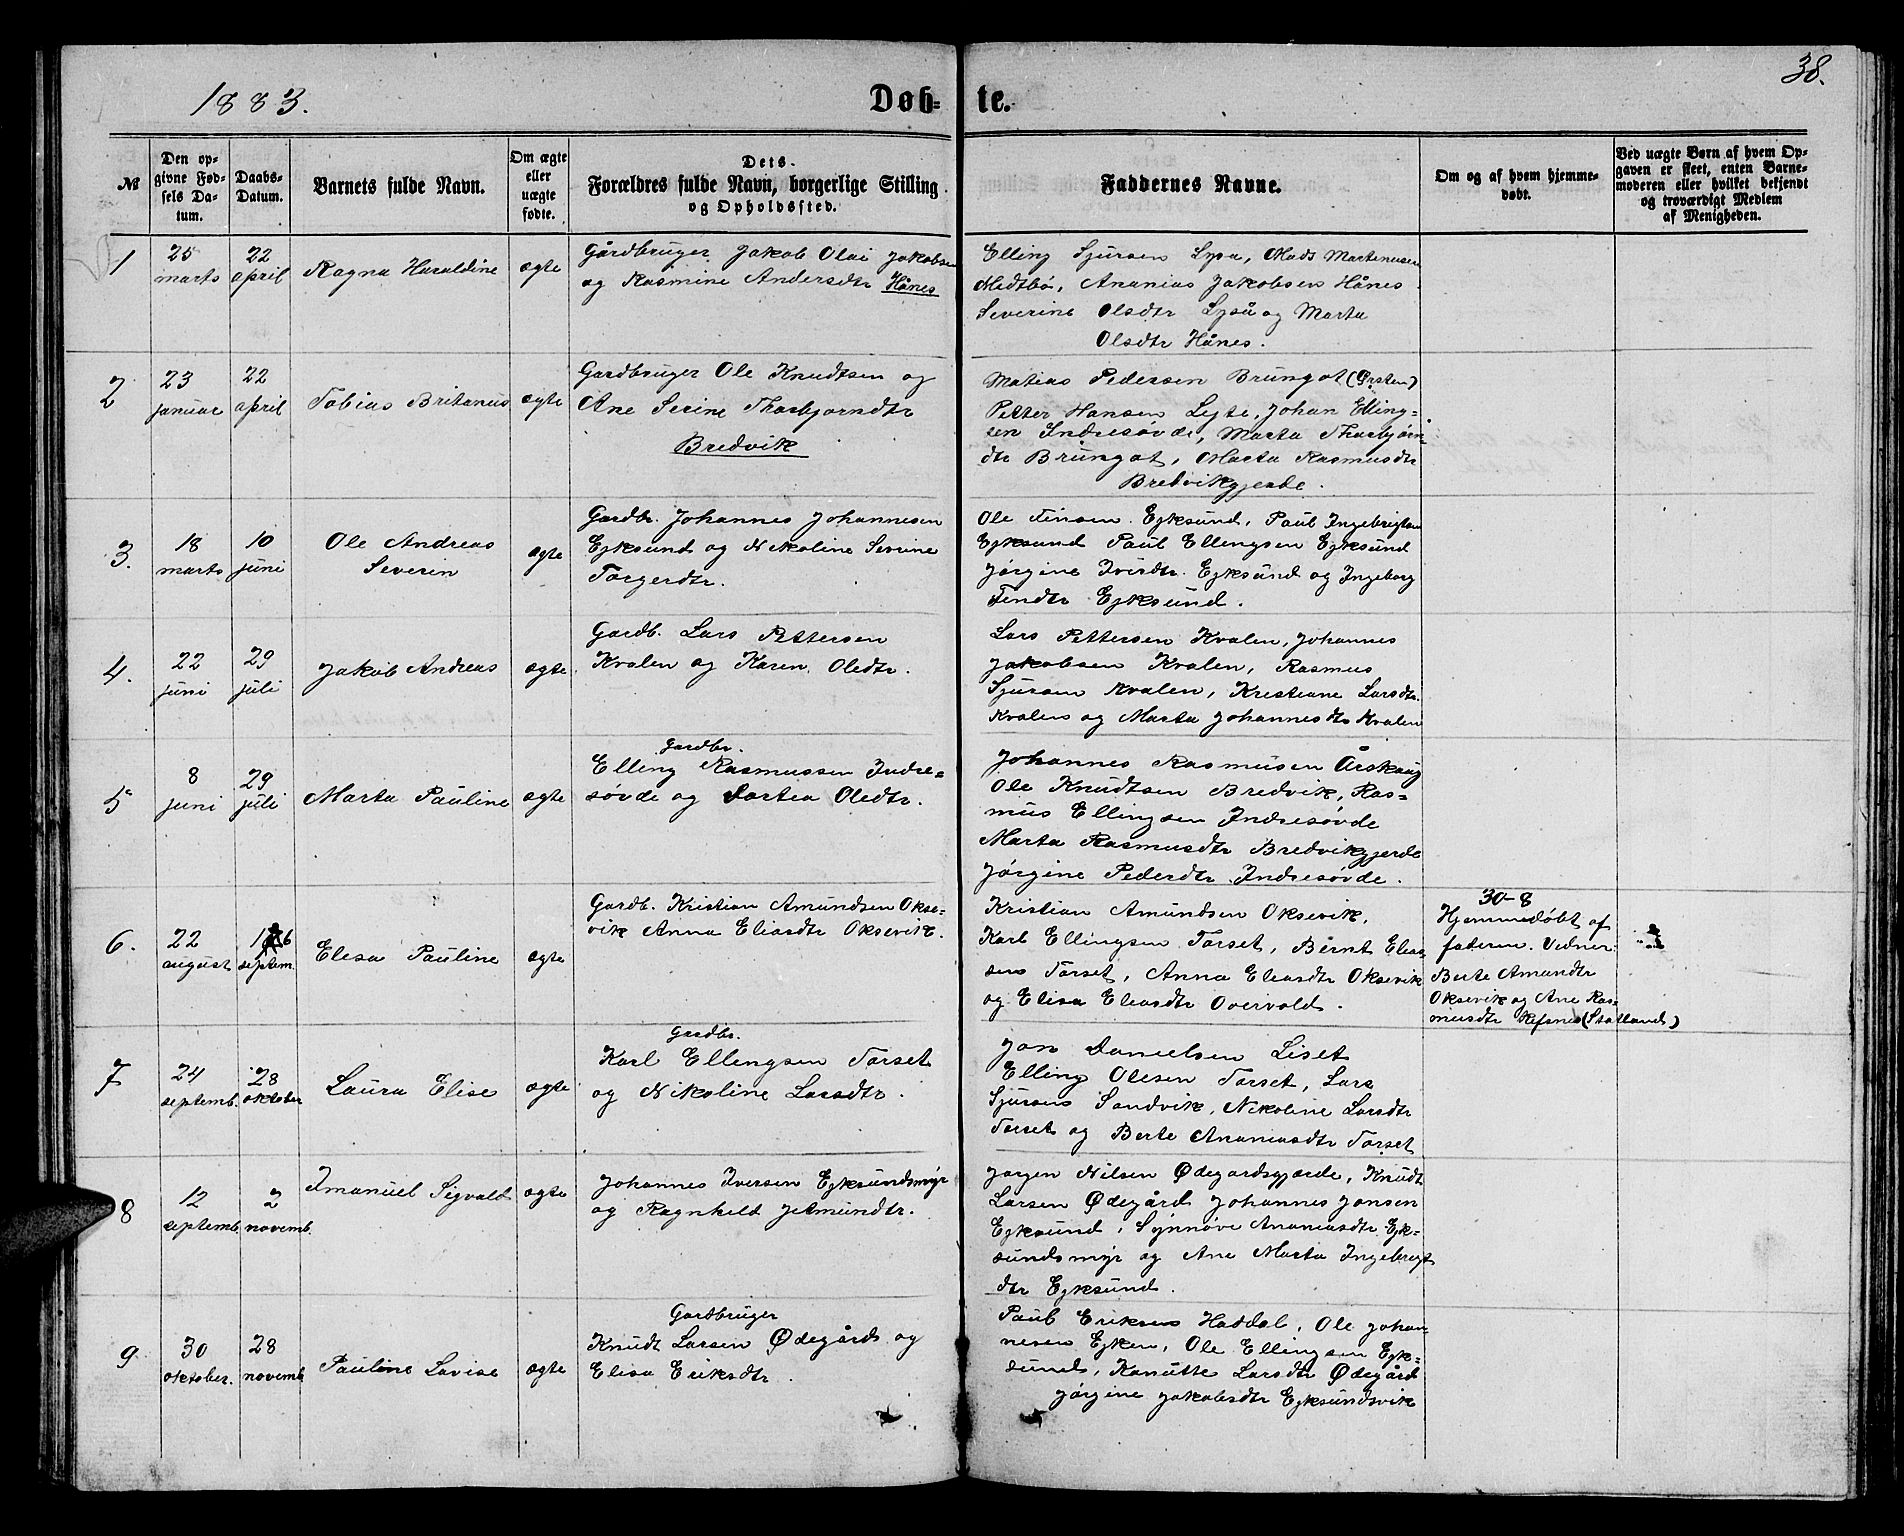 1883.
Døb-
te.
38.
№
Den op-
givne Fød-
sels Da-
tum.
Daabs-
Datum.
Barnets fulde Navn.
Om ægte
eller
uægte
fødte.
Dets
Forældres fulde Navn, borgerlige Stilling
og Opholdssted.
Faddernes Navne.
Om og af hvem hjemme-
døbt.
Ved uægte Børn af hvem Op-
gaven er skeet, enten Barne-
moderen eller hvilket bekjendt
og troværdigt Medlem
af Menigheden.
1
25
marts
22
april
Ragna Haraldine
ægte
Gårdbruger Jakob Olai Jakobsen
og Rasmine Andersdtr Hånes
Elling Sjursen Lysø, Mads Martenusen
Medtbø, Ananias Jakobsen Hånes
Severine Olsdtr Lyså og Marta
Olsdtr Hånes.
2
23
januar
22
april
Tobias Britanus
ægte
Gardbruger Ole Knudtsen og
Ane Serine Thorbjorndtr
Bredvik
Matias Pedersen Brungot (Ørsten)
Petter Hansen Lejte, Johan Elling-
sen Indresøvde, Marta Thorbjørn-
dtr Brungot, Marta Rasmusdtr
Bredvikgjerde.
3.
18
marts
10
juni
Ole Andreas
Severin
ægte
Gardbr. Johannes Johannesen
Ejksund og Nikoline Serine
Torgerdtr.
Ole Finsen Ejksund, Paul Ingebrigtsen
Ejksund Paul Ellingsen Ejksund
Jørgine Iversdtr. Ejksund og Ingeborg
Findtr Ejksund.
4.
22
juni
29
juli
Jakob Andreas
ægte
Gardb. Lars Pettersen
Kvalen og Karen Oledtr.
Lars Pettersen Kvalen, Johannes
Jakobsen Kvalen, Rasmus
Sjursen Kvalen, Kristiane Larsdtr.
Kvalen og Marta Johannesdtr Kvalen
5
8
juni
29
juli
Marta Pauline
ægte
Gardbr.
Elling Rasmussen Indre-
søvde og Dortea Oledtr.
Johannes Rasmusen Årskaug
Ole Knudtsen Bredvik, Ras-
mus Ellingsen Indresøvde
Marta Rasmusdtr Bredvikgjerde
Jørgine Pederdtr Indresøvde.
6.
22
august
16
septem.
Elesa Pauline
ægte
Gardb. Kristian Amundsen Okse-
vik Anna Eliasdtr Oksevik.
Kristian Amundsen Oksevik,
Karl Ellingsen Torset, Bernt Elias-
sen Torset, Anna Eleasdtr Oksevik
og Elisa Eleasdtr Overvold.
30-8
Hjemmedøbt af
faderen. Vidner:
Berte Amundtr
Oksevik og Ane Ras-
musdtr Refsnes (Statland)
7
24
septemb.
28
oktober
Laura Elise
ægte
Gardbr.
Karl Ellingsen Torset
og Nikoline Larsdtr.
Jon Danielsen Liset
Elling Olesen Torset, Lars
Sjursen Sandvik, Nikoline Larsdtr
Torset og Berte Ananiasdtr Torset
8
12
septemb.
2
novemb.
Imanuel Sigvald
ægte
Johannes Iversen Ejksundsmyr
og Ragnheld Jetmundtr.
Jørgen Nilsen Ødegardsgjærde, Knudt
Larsen Ødegård Johannes Jonsen
Ejksund, Synnøve Ananiasdtr Ejk-
sundsmyr og Ane Marta Ingebrigt
dtr Ejksund.
9
30
oktober.
28
novemb.
Pauline Lovise
ægte
Gardbruger
Knudt Larsen Ødegård og
Elisa Eriksdtr.
Paul Eriksen Haddal, Ole Johan-
nesen Ejken, Ole Ellingsen Ejk-
sund, Kanutte Larsdtr Ødegård
Jørgine Jakobsdtr Ejksundsvik